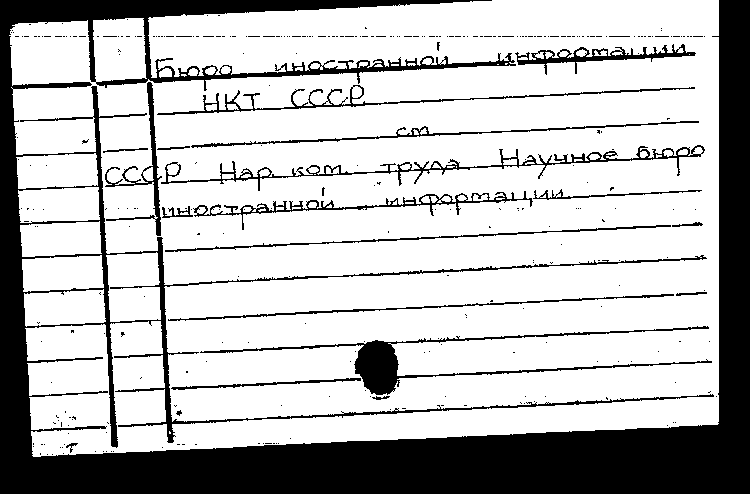 Бюро иностранной информации
НКТ СССР
см
СССР Нар. ком. труда Научное бюро
иностранной информации